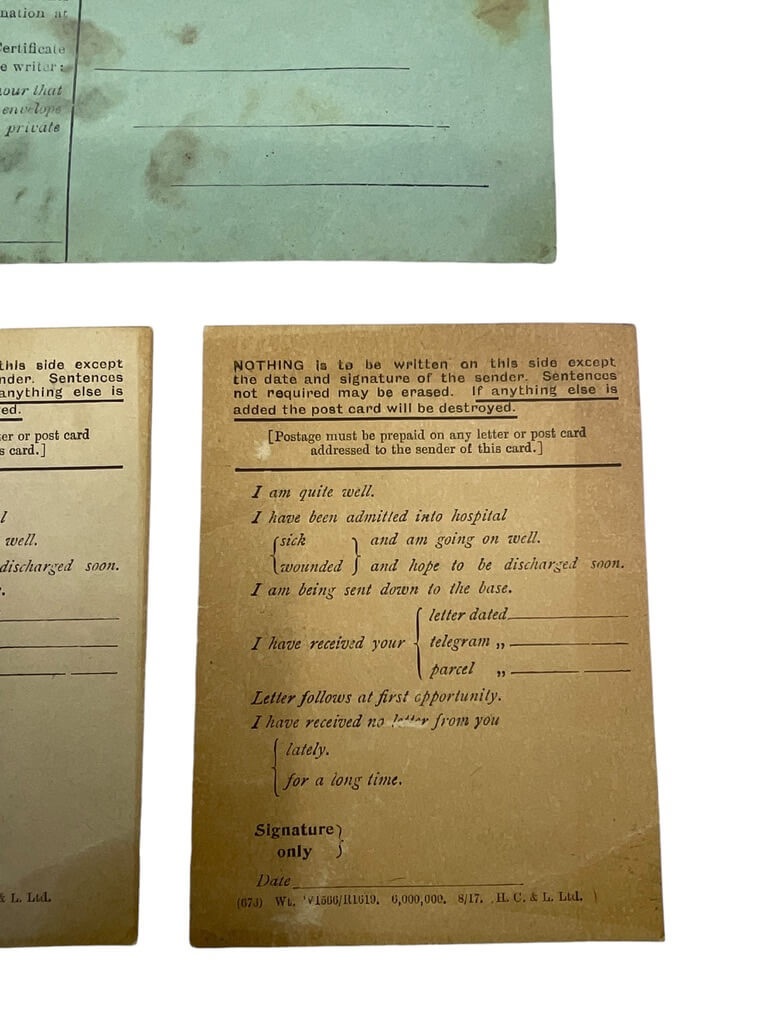 nation at
Certificate
e writer:
our that
envelope
private
this side except
nder. Sentences
anything else is
ed.
er or post card
s card.]
l
well.
discharged soon.
& L. Ltd.
NOTHING is to be written on this side except
the date and signature of the sender. Sentences
not required may be erased. If anything else is
added the post card will be destroyed.
[Postage must be prepaid on any letter or post card
addressed to the sender of this card.]
I am quite well.
I have been admitted into hospital
sick and am going on well.
wounded and hope to be discharged soon.
I am being sent down to the base.
letter dated
I have received your telegram „
parcel „
Letter follows at first opportunity.
I have received no letter from you
lately.
for a long time.
Signature
only
Date
(673) Wt. W1566/R1619. 6,000,000. 8/17. H. C. & L. Ltd.